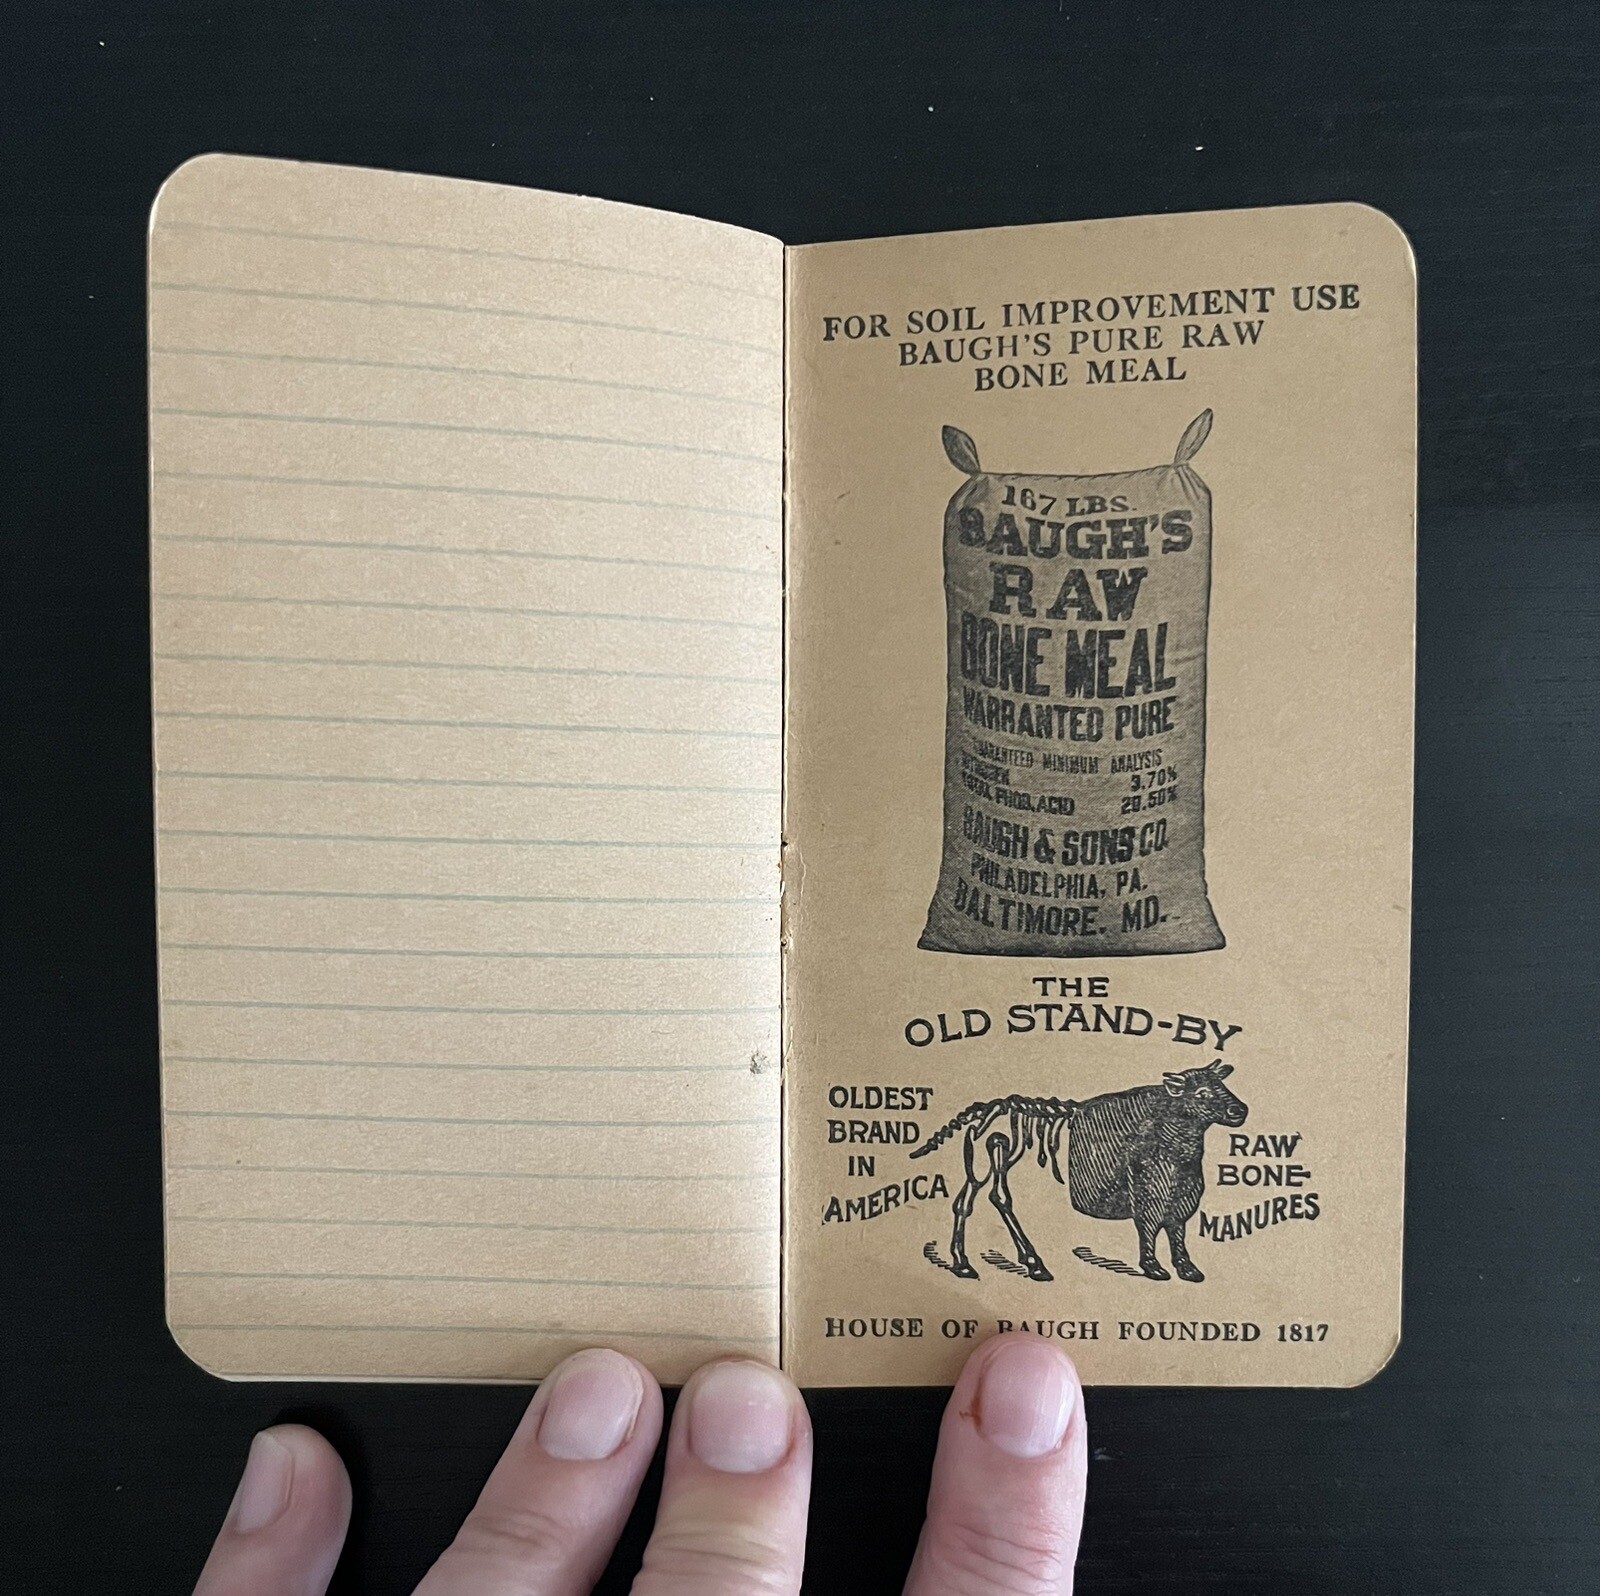 FOR SOIL IMPROVEMENT USE
BAUGH'S PURE RAW
BONE MEAL
167 LBS.
BAUGH'S
RAW
BONE MEAL
WARRANTED PURE
GUARANTEED MINIMUM ANALYSIS
NITROGEN 3.70%
TOTAL PHOS. ACID 20.50%
BAUGH & SONS CO.
PHILADELPHIA, PA.
BALTIMORE, MD.
THE
OLD STAND-BY
OLDEST
BRAND
IN
AMERICA
RAW
BONE
MANURES
HOUSE OF BAUGH FOUNDED 1817